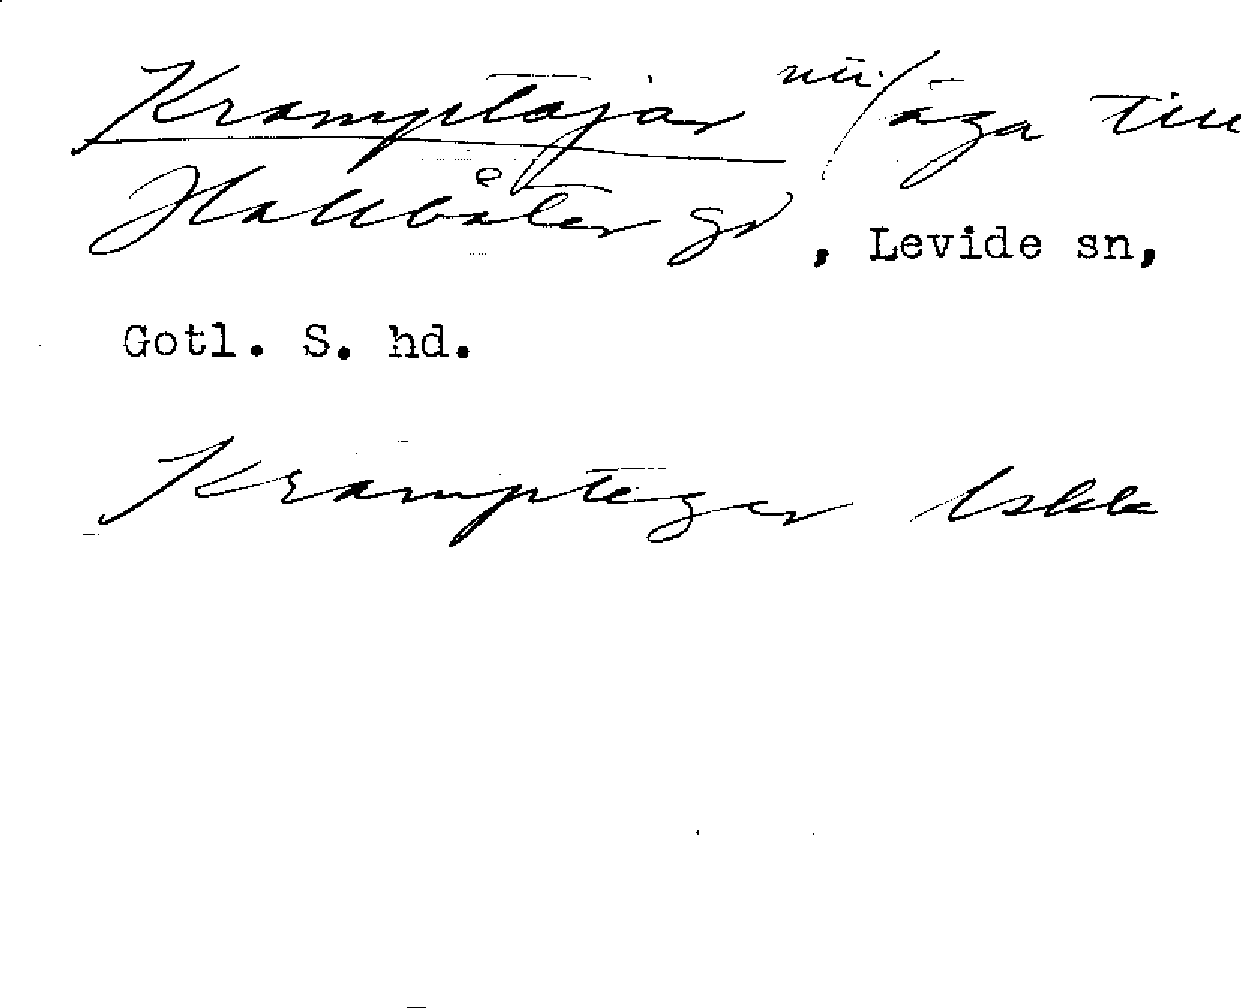 Kramptäjar nu/äga till
Hallbåter gd, Levide sn,
Gotl. S. hd.
Krampteger Uskk